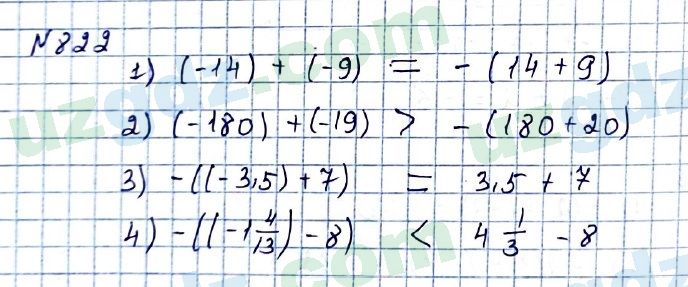 №822
1) (-14) + (-9) = -(14 + 9)
2) (-180) + (-19) > -(180+20)
3) -((-3,5) + 7) = 3,5 + 7
4) -((-1 4/13) - 8) < 4 1/3 - 8
uzgdz.com
uzgdz.com